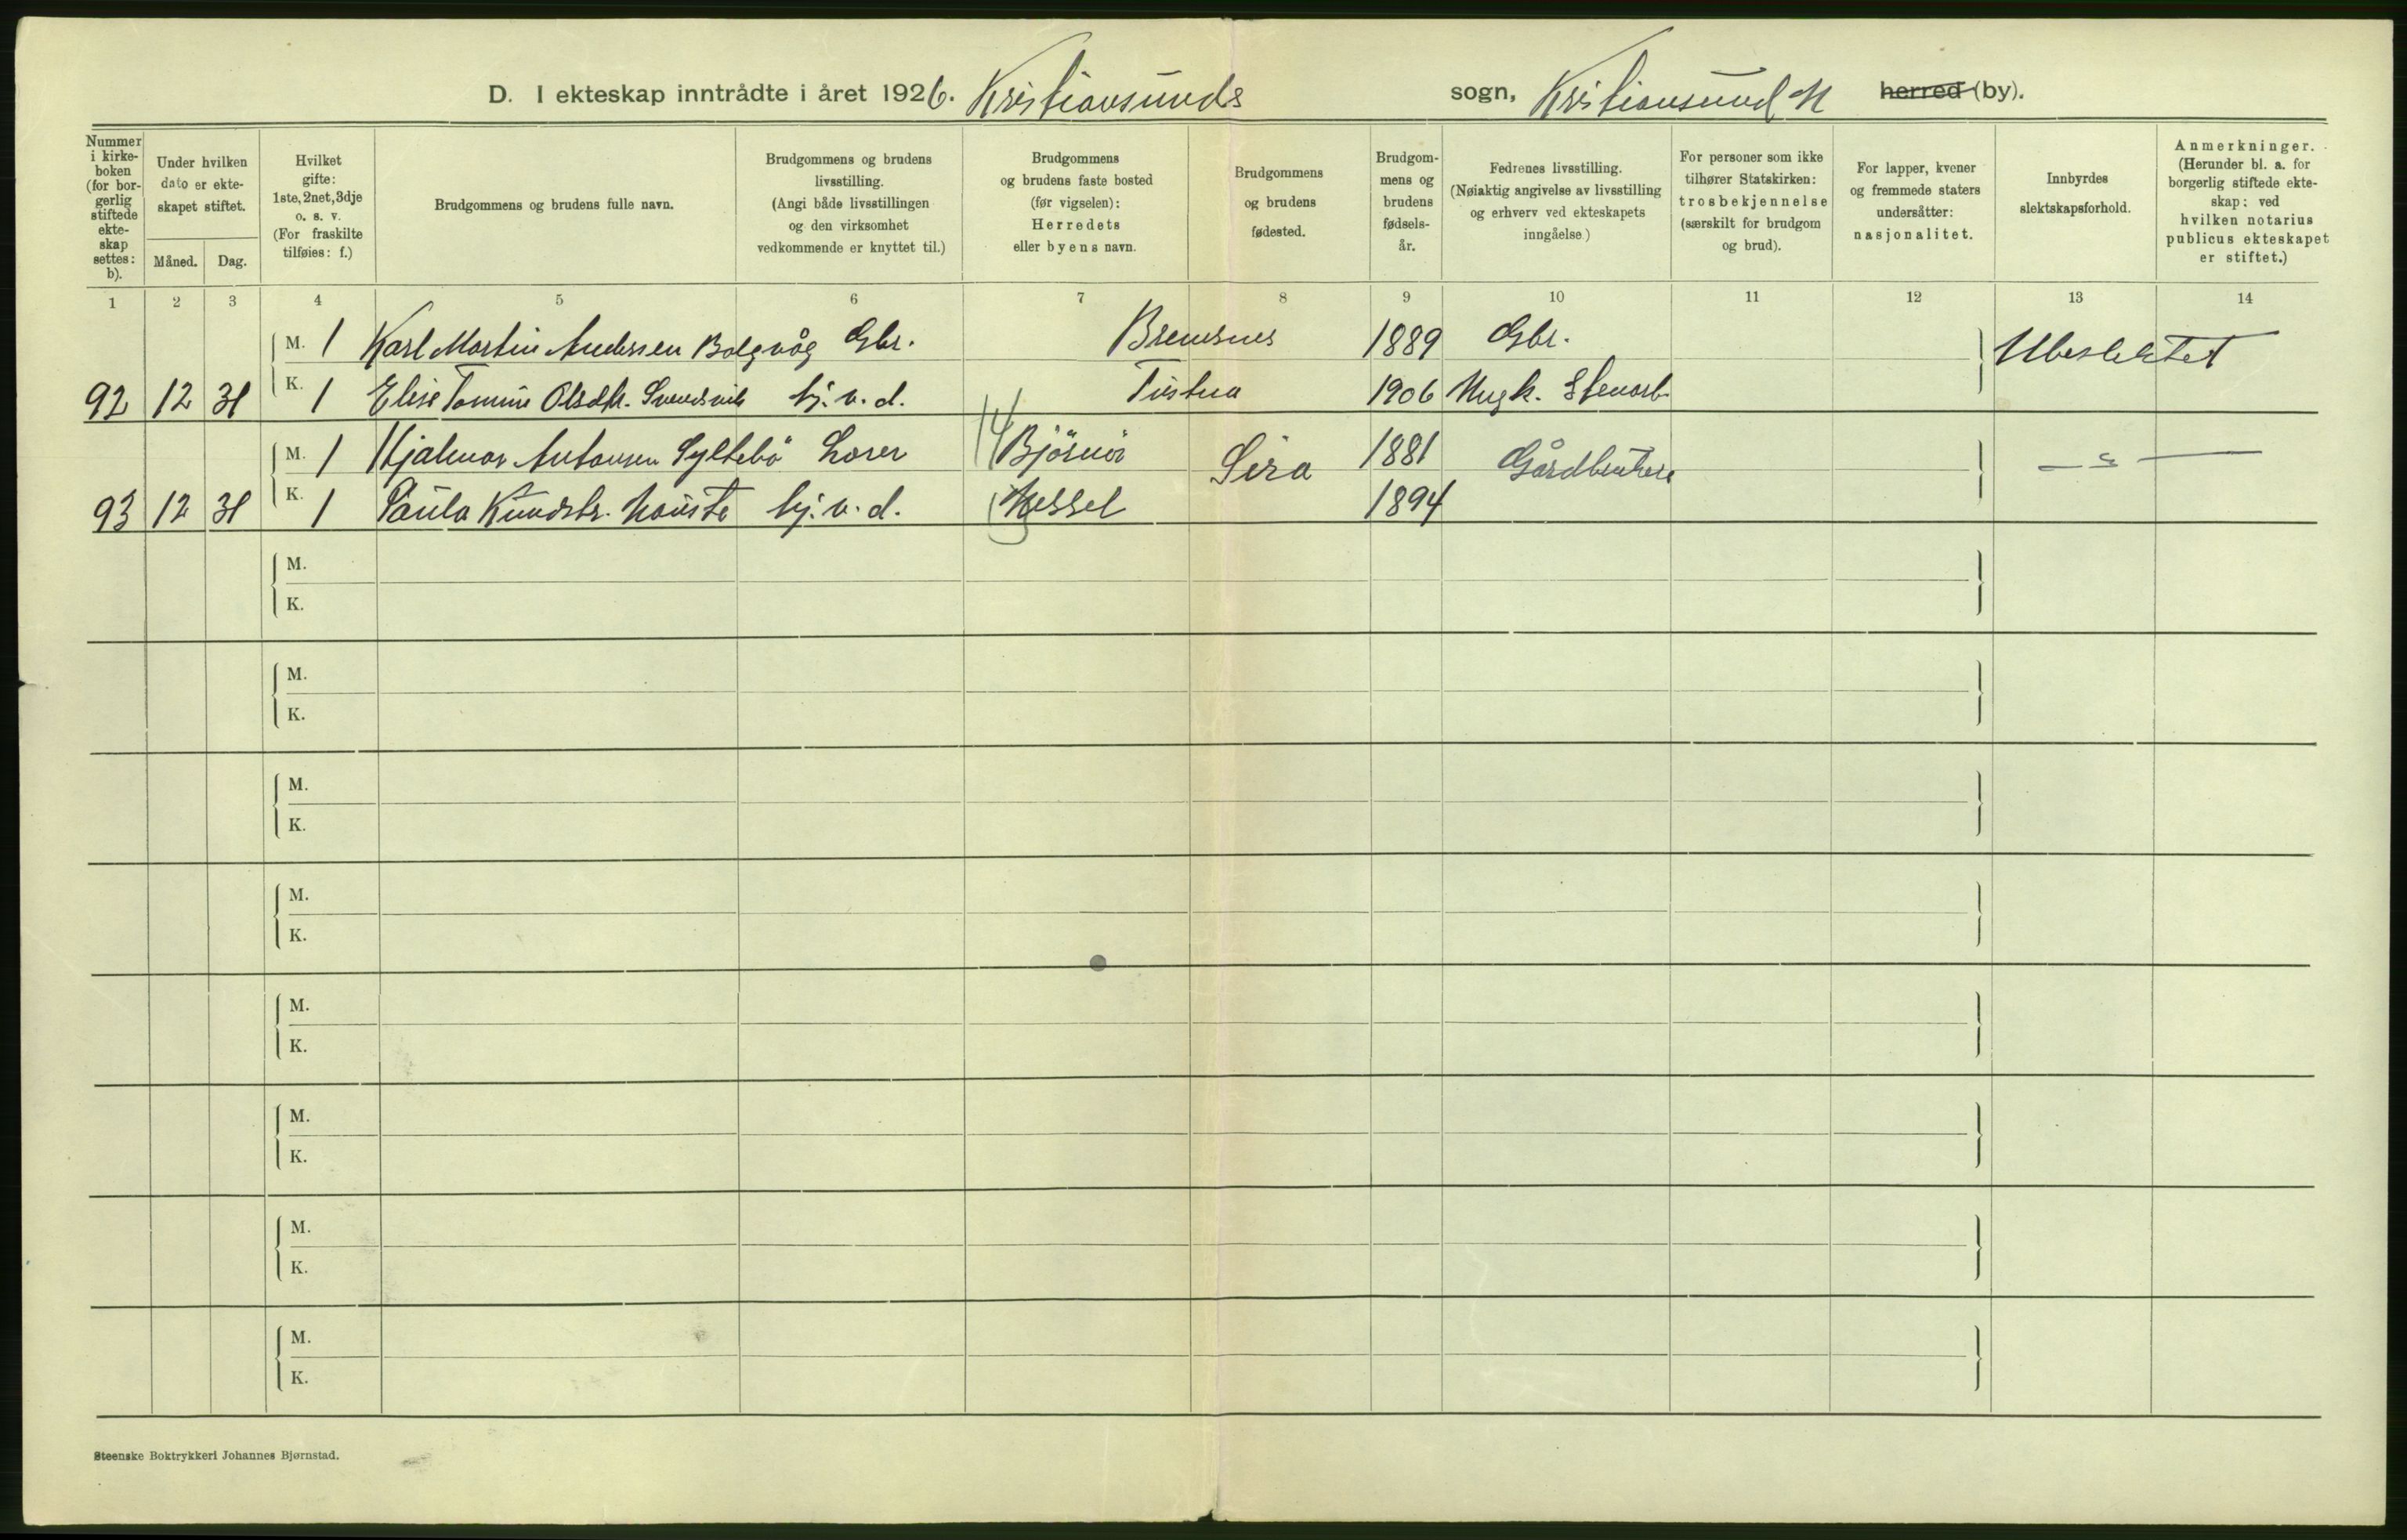 D. I ekteskap inntrådte i året 1926. Kristiansunds sogn, Kristiansund N herred (by).
Nummer i kirkeboken (for borgerlig stiftede ekteskap settes: b).
Under hvilken dato er ekteskapet stiftet.
Måned.
Dag.
Hvilket gifte: 1ste, 2net, 3dje o. s. v. (For fraskilte tilføies: f.)
Brudgommens og brudens fulle navn.
Brudgommens og brudens livsstilling. (Angi både livsstillingen og den virksomhet vedkommende er knyttet til.)
Brudgommens og brudens faste bosted (før vigselen): Herredets eller byens navn.
Brudgommens og brudens fødested.
Brudgommens og brudens fødselsår.
Fedrenes livsstilling. (Nøiaktig angivelse av livsstilling og erhverv ved ekteskapets inngåelse)
For personer som ikke tilhører Statskirken: trosbekjennelse (særskilt for brudgom og brud).
For lapper, kvener og fremmede staters undersåtter: nasjonalitet.
Innbyrdes slektskapsforhold.
Anmerkninger. (Herunder bl. a. for borgerlig stiftede ekteskap: ved hvilken notarius publicus ekteskapet er stiftet.)
1 2 3 4 5 6 7 8 9 10 11 12 13 14
M. 1 Karl Martin Anderssen Bolgvåg Gbr. Bremsnes 1889 Gbr. Ubeslektet
92 12 31 K. 1 Elise Tomine Olsdtr. Svendsvik hj. v. d. Tustna 1906 Ungk. Stenarb.
M. 1 Hjalmar Antonsen Syltebö Lærer 14 Björnör Sira 1881 Gårdbrukere — " —
93 12 31 K. 1 Paula Knudstr. Nauste hj. v. d. Nesset 1894
M.
K.
M.
K.
M.
K.
M.
K.
M.
K.
M.
K.
M.
K.
M.
K.
Steenske Boktrykkeri Johannes Bjørnstad.